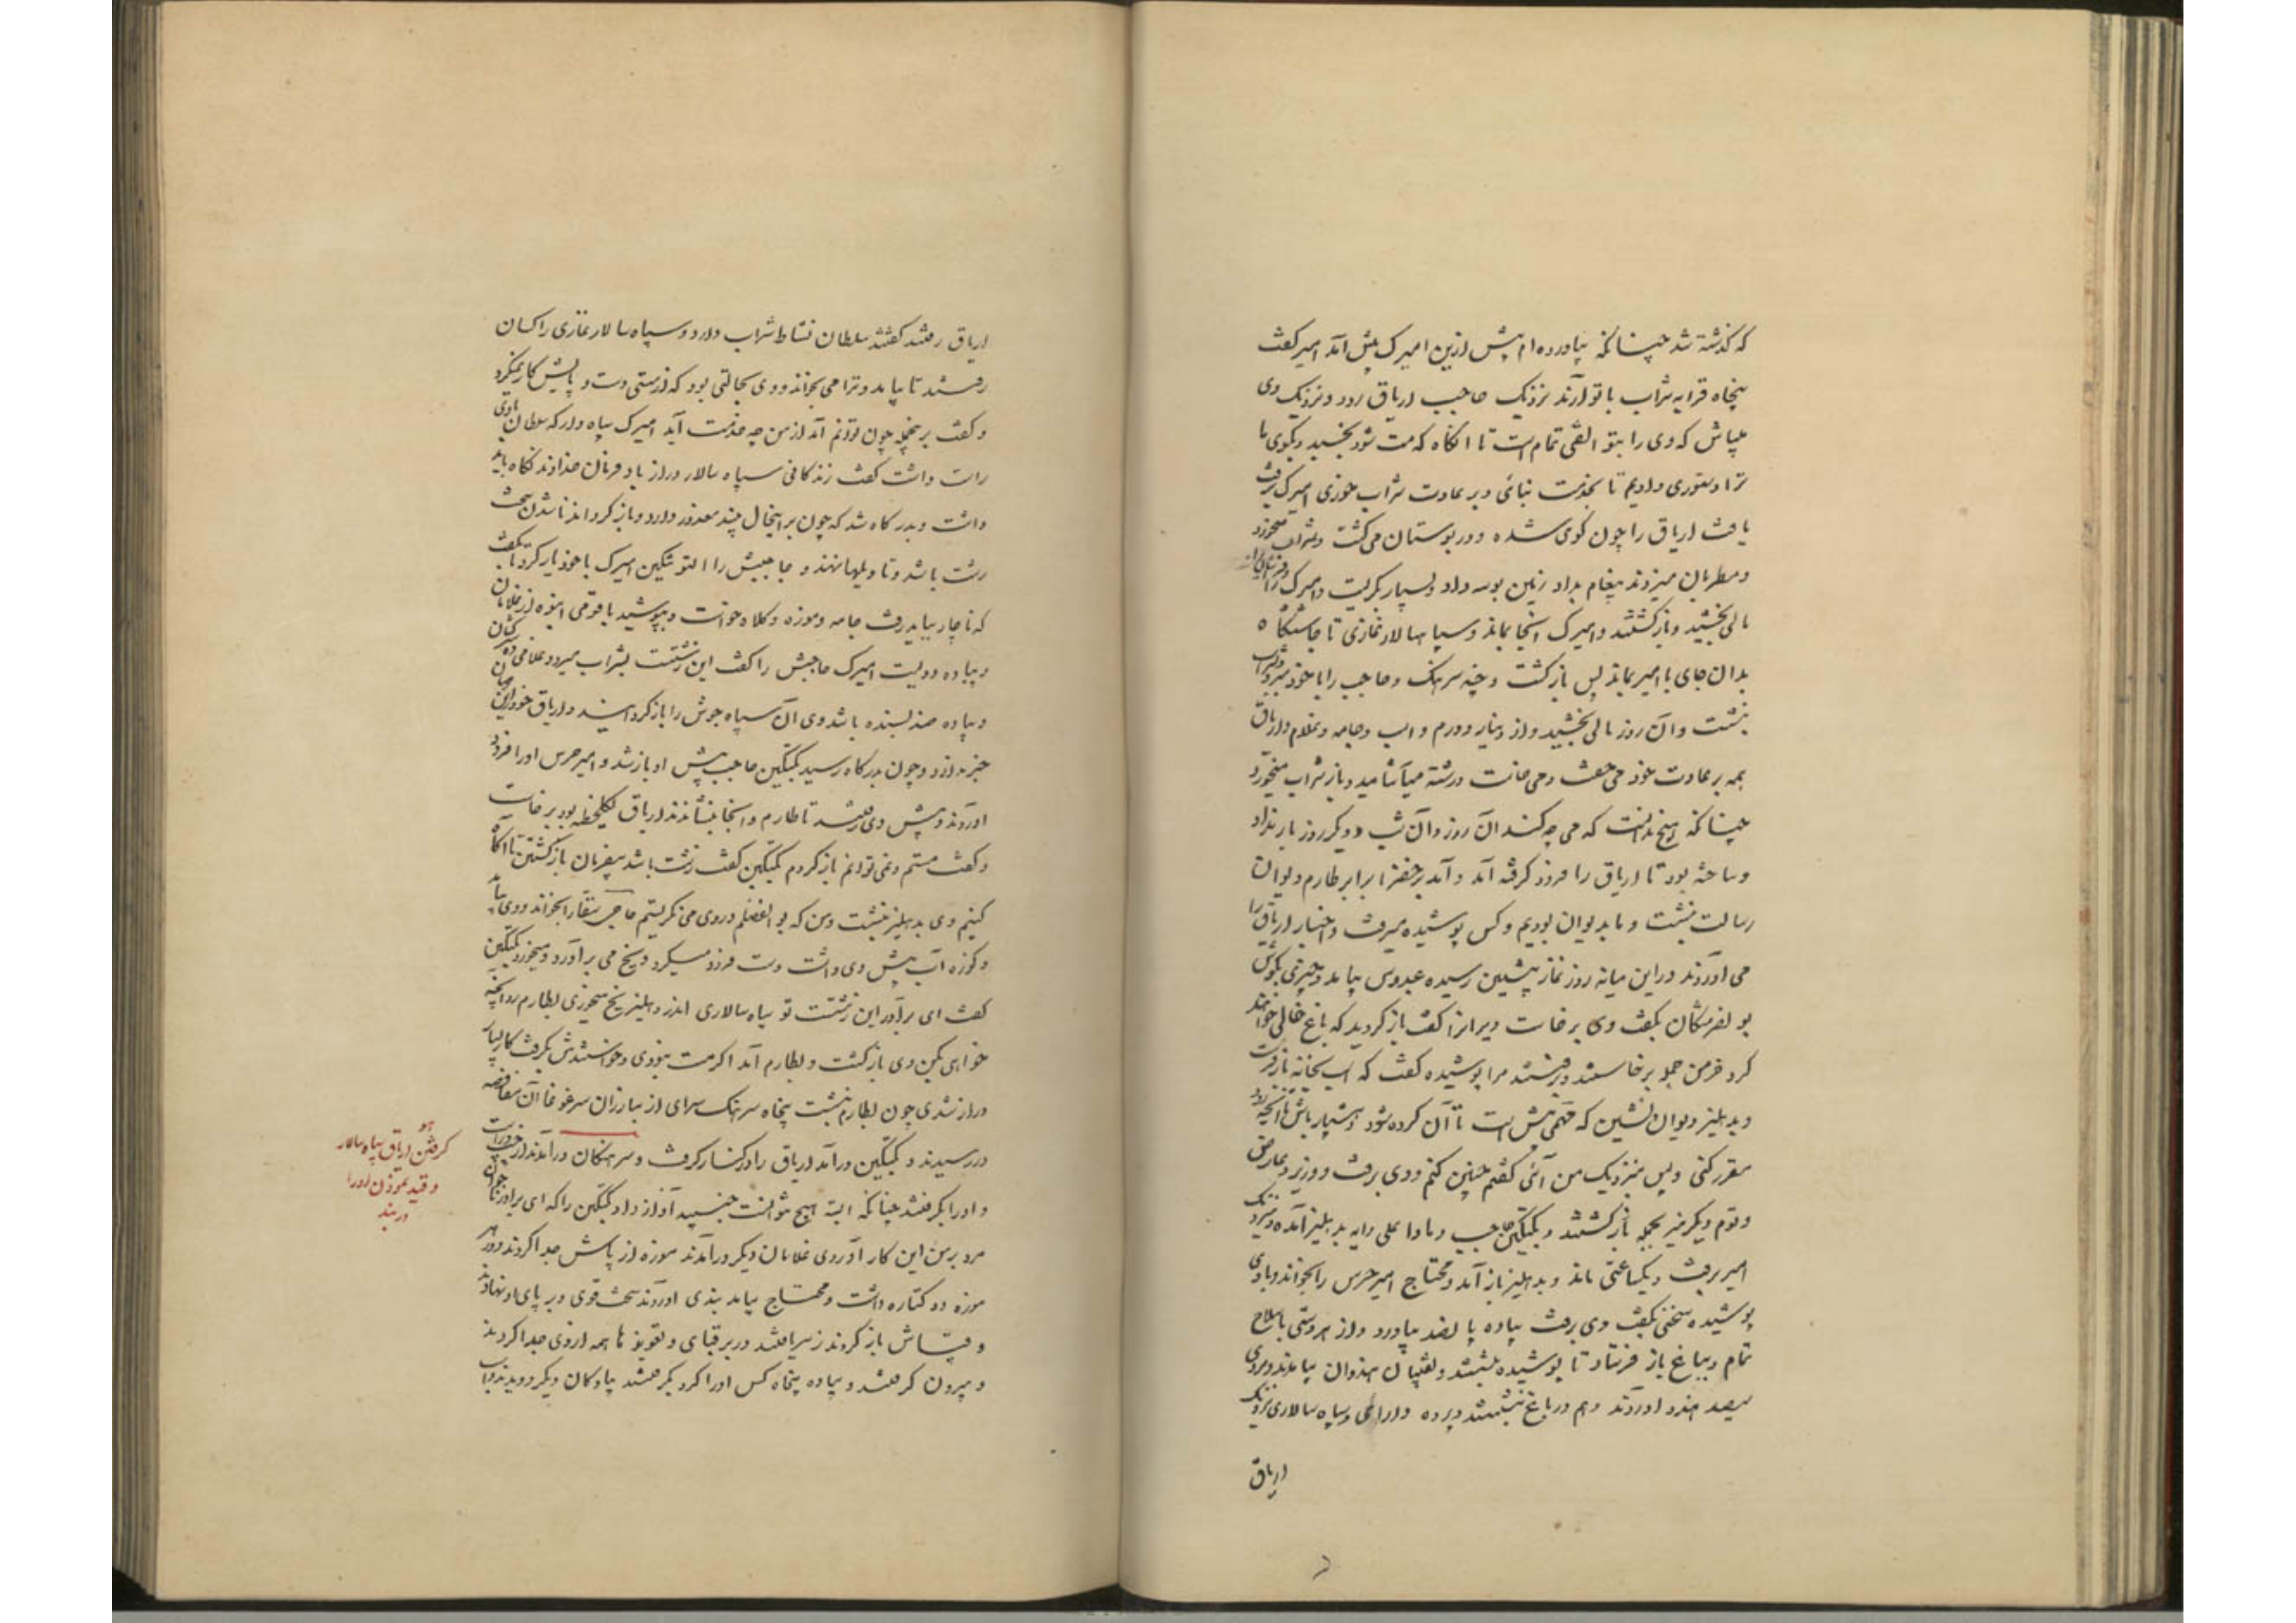 که گذشته شد چنانکه بیاورده‌ام پیش ازین امیرک پیش آمد امیر گفت
پنجاه قرابه شراب با تو آرند نزدیک حاجب اریاق رود و نزدیک وی
میباش که وی را بتو الفتی تمام است تا آنگاه که مست شود بخسبد و بگوی ما
ترا دستوری دادیم تا بخدمت نیائی و بر عادت شراب خوری امیرک برفت
یافت اریاق را چون گوی شده و در بوستان می گشت و شراب میخورد
و مطربان میزدند پیغام بداد زمین بوسه داد و بسیار بگریست و امیرک را
مالی بخشید و بازگشتند و امیرک آنجا بماند و سپاهسالار غازی تا چاشتگاه
بدان جای با امیر بماند پس بازگشت و چند سرهنگ و حاجب را با خود ببرد و بشراب
بنشست و آن روز مالی بخشید و از دینار و درم و اسب و جامه و غلام و اریاق
همه بر عادت خود می خفت و می خاست و رشته میآشامید و باز شراب میخورد
چنانکه هیچ ندانست که می چه کند آن روز و آن شب و دیگر روز بار نداد
و ساخته بود تا اریاق را فرود گرفته آید و آمد بر خضرا برابر طارم دیوان
رسالت بنشست و ما بدیوان بودیم و کس پوشیده میرفت و اخبار اریاق را
می آوردند در این میانه روز نماز پیشین رسیده عبدوس بیامد و چیزی بگوش
بو نصر مشکان بگفت وی برخاست و دبیرانرا گفت بازگردید که باغ خالی خواهند
کرد جز من جمله برخاستند و برفتند مرا پوشیده گفت که اسب بخانه بازفرست
و بدهلیز دیوان بنشین که مهمی پیش است تا آن کرده شود و هشیار باش تا آنچه رود
مقرر کنی و پس بنزدیک من آئی گفتم چنین کنم و وی برفت و وزیر و عارض
و قوم دیگر نیز بجمله بازگشتند و بگتگین حاجب و داماد علی دایه بدهلیز آمده و نزدیک
امیر برفت و یکساعتی ماند و بدهلیز باز آمد و محتاج امیر حرس را بخواند و باوی
پوشیده سخنی بگفت وی برفت پیاده پانصد بیاورد و از هر دستی با سلاح
تمام و بباغ باز فرستاد تا پوشیده بنشستند و نقیبان هندوان بیامدند و مردی
سیصد هندو آوردند و هم در باغ بنشستند و پرده داری و سپاه سالاری نزدیک
اریاق
اریاق رفتند گفتند سلطان نشاط شراب دارد و سپاه سالار غازی را کسان
رفتند تا بیاید و ترا می بخواند و وی بحالتی بود که از مستی دست و پایش کار نمیکرد
و گفت بر ینجمله چون توانم آمد از من چه خدمت آید امیرک سپاه دار که سلطان با وی
راست داشت گفت زندگانی سپاه سالار دراز باد فرمان خداوند نگاه باید
داشت و بدرگاه شد که چون بر اینحال بیند معذور دارد و باز گرداند ناشدن سخت
زشت باشد و تاویلها نهند و حاجبش را التونتکین امیرک با خود یار کرد تا بگفت
که ناچار بباید رفت جامه و موزه و کلاه خواست و بپوشید با قومی انبوه از غلامان
و پیاده دویست امیرک حاجبش را گفت این زشتست بشراب میرود غلامی ده
و پیاده صد بسنده باشد وی آن سپاه جوش را باز گردانید و اریاق خود ازین جهان
خبر ندارد و چون بدرگاه رسید بگتگین حاجب پیش او باز شد و امیر حرس او را فرود
آوردند و پیش وی رفتند تا طارم و آنجا بنشاندند اریاق یکلحظه بود برخاست
و گفت مستم و نمی توانم باز گردم بگتگین گفت زشت باشد بیفرمان بازگشتن تا آگاه
کنیم وی بدهلیز بنشست و من که بوالفضلم در وی می نگریستم حاجی سقا را بخواند و وی بیامد
و کوزه آب پیش وی داشت دست فرود میکرد و یخ می برآورد و میخورد بگتگین
گفت ای برادر این زشتست تو سپاه سالاری اندر دهلیز یخ میخوری بطارم رو آنچه
خواهی بکن وی بازگشت و بطارم آمد اگر مست نبودی و خواستندش بگرفت کار بسیار
دراز شدی چون بطارم بنشست پنجاه سرهنگ سرای از مبارزان سرغوغا آن مغافصه
در رسیدند و بگتگین درآمد اریاق را در کنار گرفت و سرهنگان درآمدند از چپ و راست
و او را بگرفتند چنانکه البته هیچ نتوانست جنبید آواز داد بگتگین را که ای برادر ناجوان
مرد بر من این کار آوردی غلامان دیگر درآمدند موزه از پایش جدا کردند و در هر
موزه دو کتاره داشت و محتاج بیامد بندی آوردند سخت قوی و بر پای او نهادند
و قباش باز کردند زهر یافتند در بر قبای و تعویذها همه از وی جدا کردند
و بیرون گرفتند و پیاده پنجاه کس او را گرد بگرفتند پیادگان دیگر دویدند و اسب
هو
گرفتن اریاق سپاه سالار
و قید نمودن او را
در بند